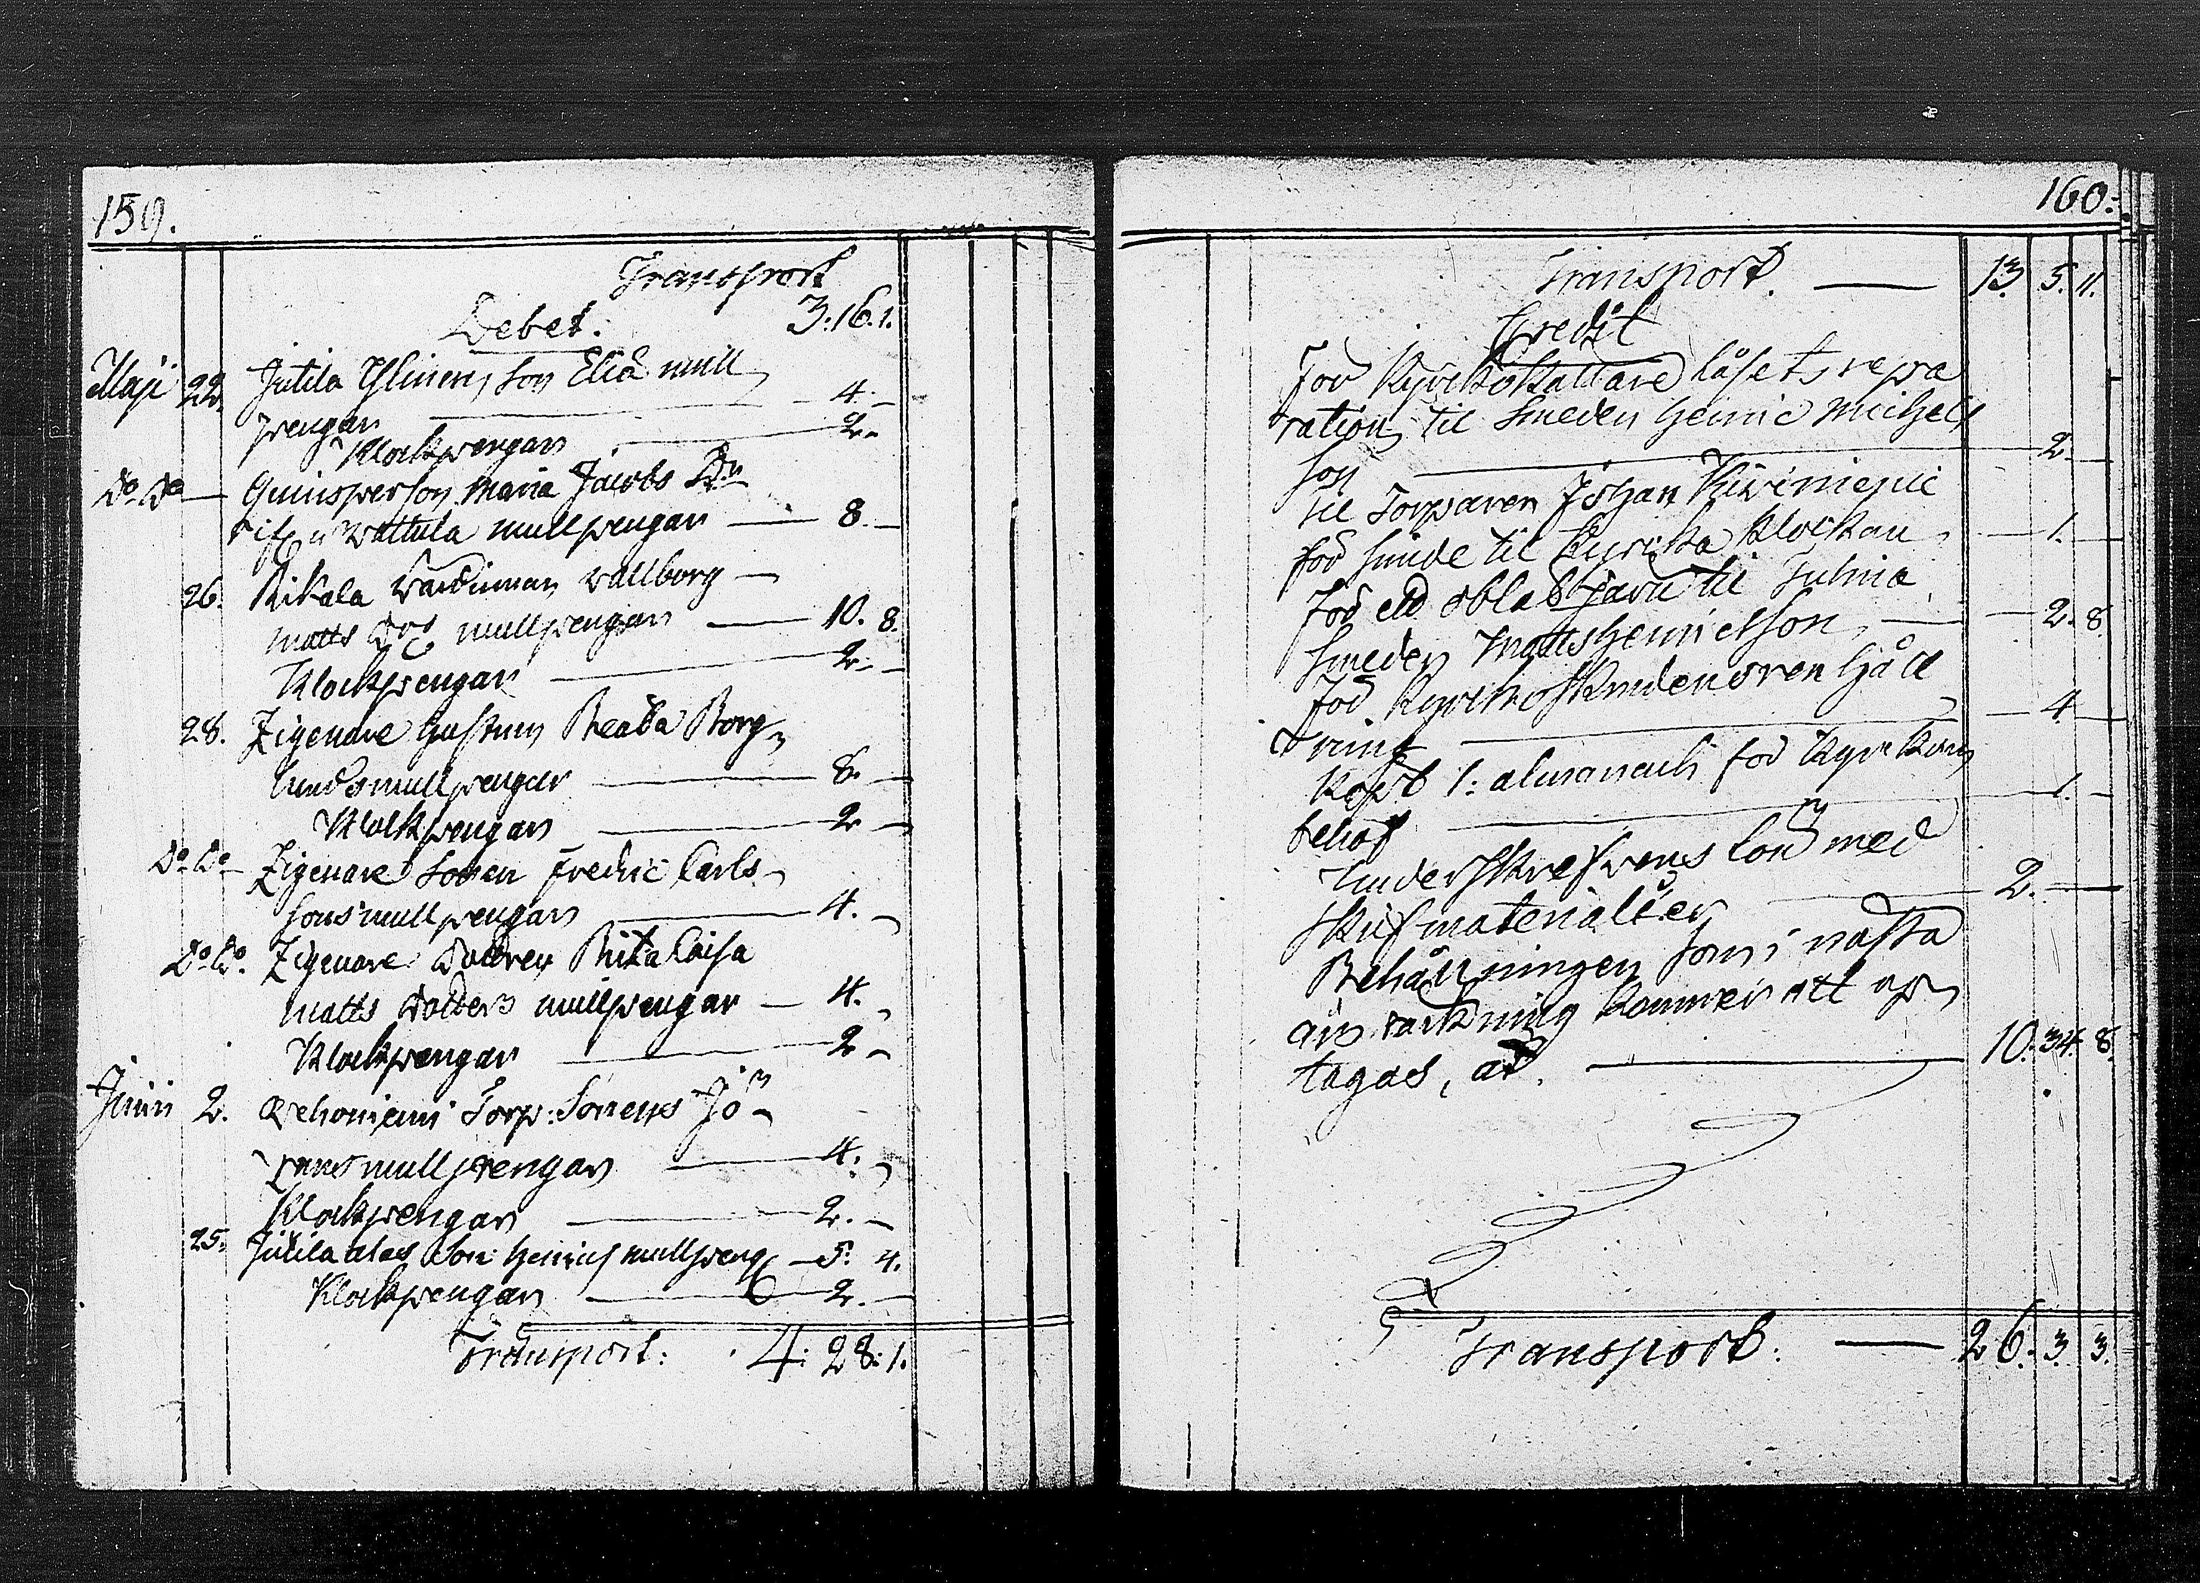 159.
Transport
Debet. 3:16.1.
Maji 22. Jutila Yllinen, son Eliæ mull
pengar — 4.—
Klockpengar — 2.
Do Do — Maria Jacobs Dr
Wattula mullpengar — 8.—
26. Rikala Wallborg —
Matts Dr mullpengar — 10. 8.
Klockpengar — 2.—
28. Zigenare Hustrun Beata Borg-
lunds mullpengar — 8.—
Klockpengar — 2—
Do Do — Zigenare Sonen Fredric Carls-
sons mullpengar — 4.—
Do Do. Zigenare Dottren Brita Caisa
Matts Dotters mullpengar — 4.
Klockpengar — 2—
Junii 2. Torp: Sonens Jo-
hans mullpengar — 4.
Klockpengar — 2.—
25. Jutila Son: Henrics mullpeng — 5. 4.
Klockpengar — 2.—
Transport: 4:28:1.
160.
Transport. — 13. 5. 11.
Credit
För Kyrko låsets repa
ration, til Smeden Henric Michels
son — 2.—
til Torparen Johan Kiviniemi
för smide til Kyrcko Klockan — 1.—
För oblat järn til
Smeden Matts Henricsson, — 2. 8.
För
ning — 4—
Köpt 1: almanach för Kyrkans
behof — 1.—
Underskrefvens lön med
skrifmaterialier — 2.—
Behållningen som i nästa
års räkning kommer att up-
tagas, är. — 10. 34. 8.
Transport. — 26. 3. 3.